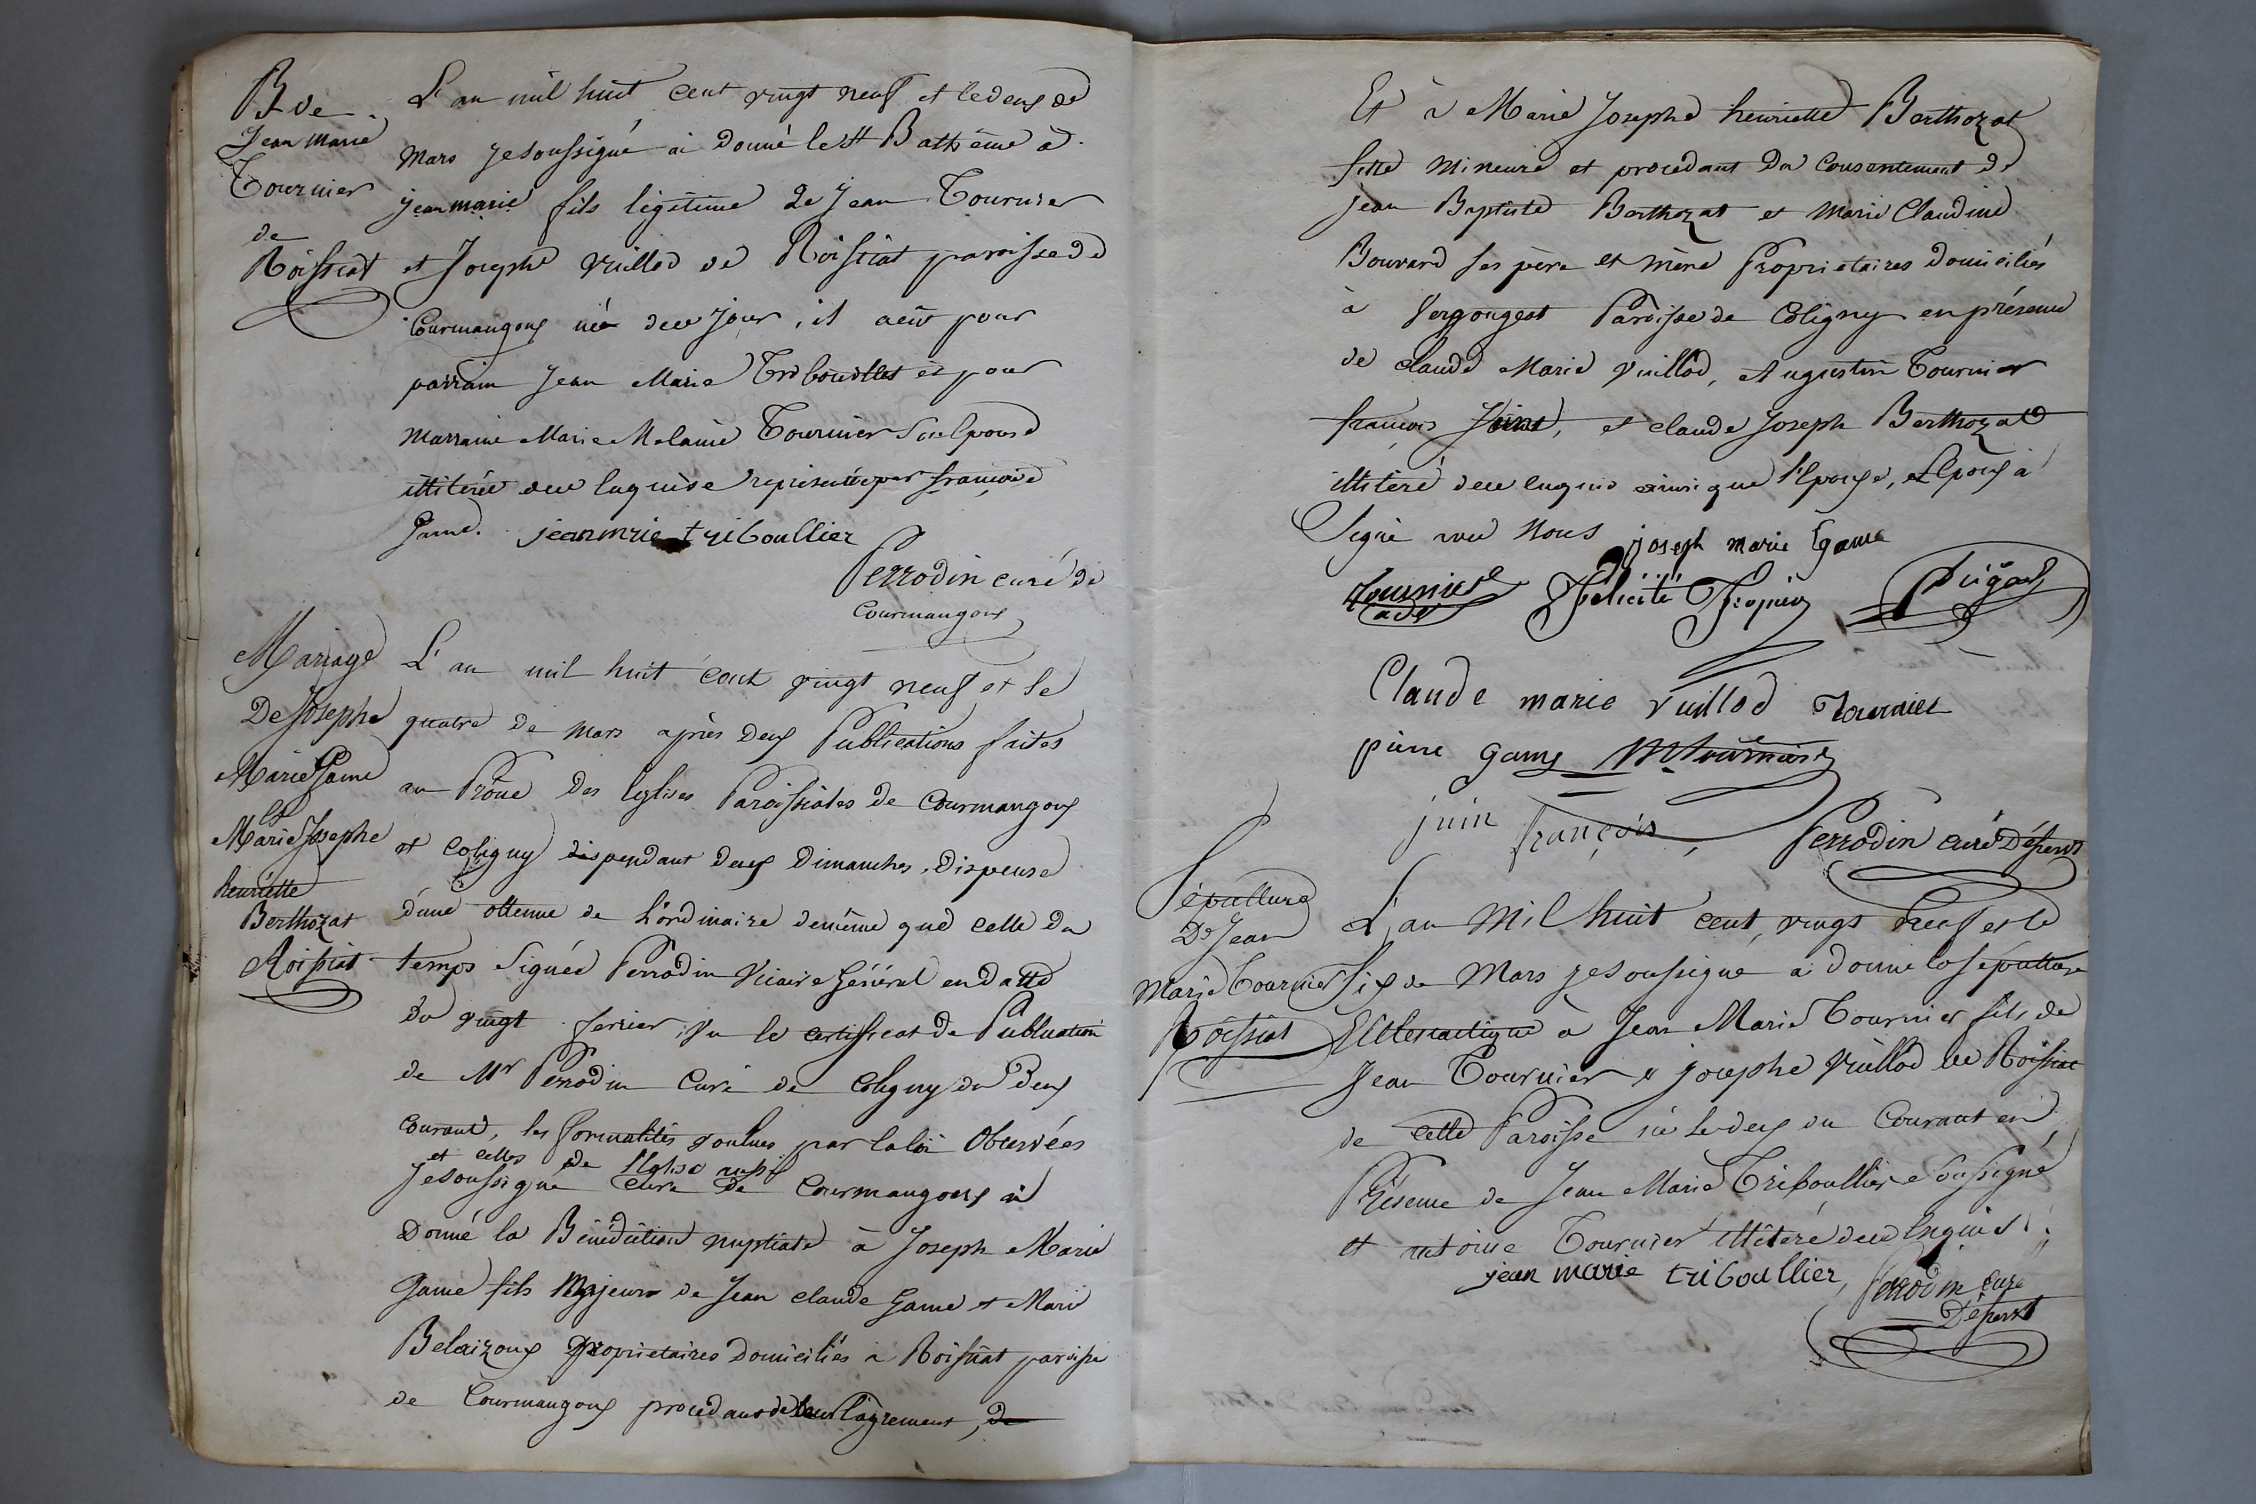 B. de
Jean Marie
Tournier
de
Roissiat
L'an mil huit cent vingt neuf et le deux de
Mars je soussigné ai donné le St Bathême à
jean marie fils légitime de Jean Tournier
et Josephe Vuillod de Roissiat paroisse de
Courmangoux né dece jour, il a eu pour
parrain Jean Marie Tribouillet et pour
Marraine Marie Melanie Tournier
illiterée dece enquise représentée par françoise
Game. jean mrie triboullier
Perrodin curé de
Courmangoux
Mariage
De Josephe
Marie Game
et
Marie Josephe
henriette
Berthozat
Roissiat
L'an mil huit cent vingt neuf et le
quatre de Mars après deux Publications faites
au Prône des Eglises Paroissiales de Courmangoux
et Coligny pendant deux Dimanches, Dispense
d'une obtenue de L'ordinaire demême que celle du
temps signée Perrodin Vicaire Général en datte
du vingt fevrier, Vu le certificat de Publication
de Mr Perrodin Curé de Coligny du Deux
courant, les formalités voulues par la loi Observées
et celles de l'Eglise aussi
Je soussigné Curé de Courmangoux ai
Donné la Bénédiction nuptiale à Joseph Marie
Game fils Majeur de Jean claude Game et Marie
Belaizoux Proprietaires Domiciliés à Roissiat paroisse
de Courmangoux procedant de leur agrement, de
Et à Marie Josephe henriette Berthozat
fille Mineure et procedant du Consentement de
jean Baptiste Berthozat et Marie Claudine
Bouvard ses père et mère Proprietaires domiciliés
à Vergongeat Paroisse de Coligny en présence
de claude Marie Vuillod, Augustin Tournier
françois Juint, et claude Joseph Berthozat
illiteré dece enquis ainsi que l'Epouse, l'Epoux à
Signé avec Nous joseph marie Game
Tournier Felicité Tropier Puigat
adt
Claude marie vuillod Tournier
pierre game M Tournier
juin françois, Perrodin curé Déservt
Sépulture
De Jean
Marie Tournier
Roissiat
L'an Mil huit cent, vingt neuf et le
Six de Mars je soussigné ai donné la sépulture
Ecclesiastique à Jean Marie Tournier fils de
Jean Tournier & josephe Vuillod de Roissiat
de cette Paroisse né le deux du Courant en
Présence de Jean Marie Triboullier Soussigné
et antoine Tournier illiteré dece enquis
jean marie triboullier, Perrodin curé
Déservt